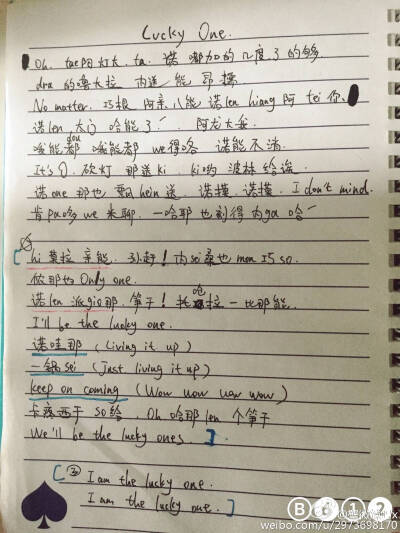 Lucky One.
Oh, tae阳灯太, ta. 诺 嘟加的 几度了的够
dra 的鲁大拉 内送 能 昂撞
No matter. 巧根 阿亲儿能 诺len hiang 阿 tei 你、
诺len, 大门 哈能了. 阿龙大
哦能都 哦能都 we得咯 诺能不消
dou
It's ①, 砍灯 那送ki. ki哟 波林给
诺one 那也 hein 送 诺撞, 诺撞. I don't mind.
肯pa哆we 来耶. 一哈耶 也刻得内ga 哈
hi 莫拉 亲能. 赶! 内sei 桑也 mon 巧so.
你那也 Only one.
诺len 派gio那, 笋子! 托 拉 一比那能
跑
I'll be the lucky one.
诺哇那 (Living it up)
一锅sei (Just living it up)
keep on coming (Wow wow wow wow)
卡痛西于 so给, Oh 哈那len 个笋子
We'll be the lucky ones. ].
[ ③ I am the lucky one.
I am the lucky one. ]
B612
weibo.com/u/2973698170